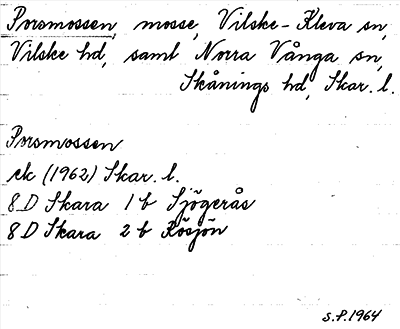 Porsmossen, mosse, Vilske-Kleva sn,
Vilske hd, samt Norra Vånga sn,
Skånings hd, Skar. l.
Porsmossen
ek (1962) Skar. l.
8 D Skara 1 b Sjögerås
8 D Skara 2 b Rösjön
S.P. 1964